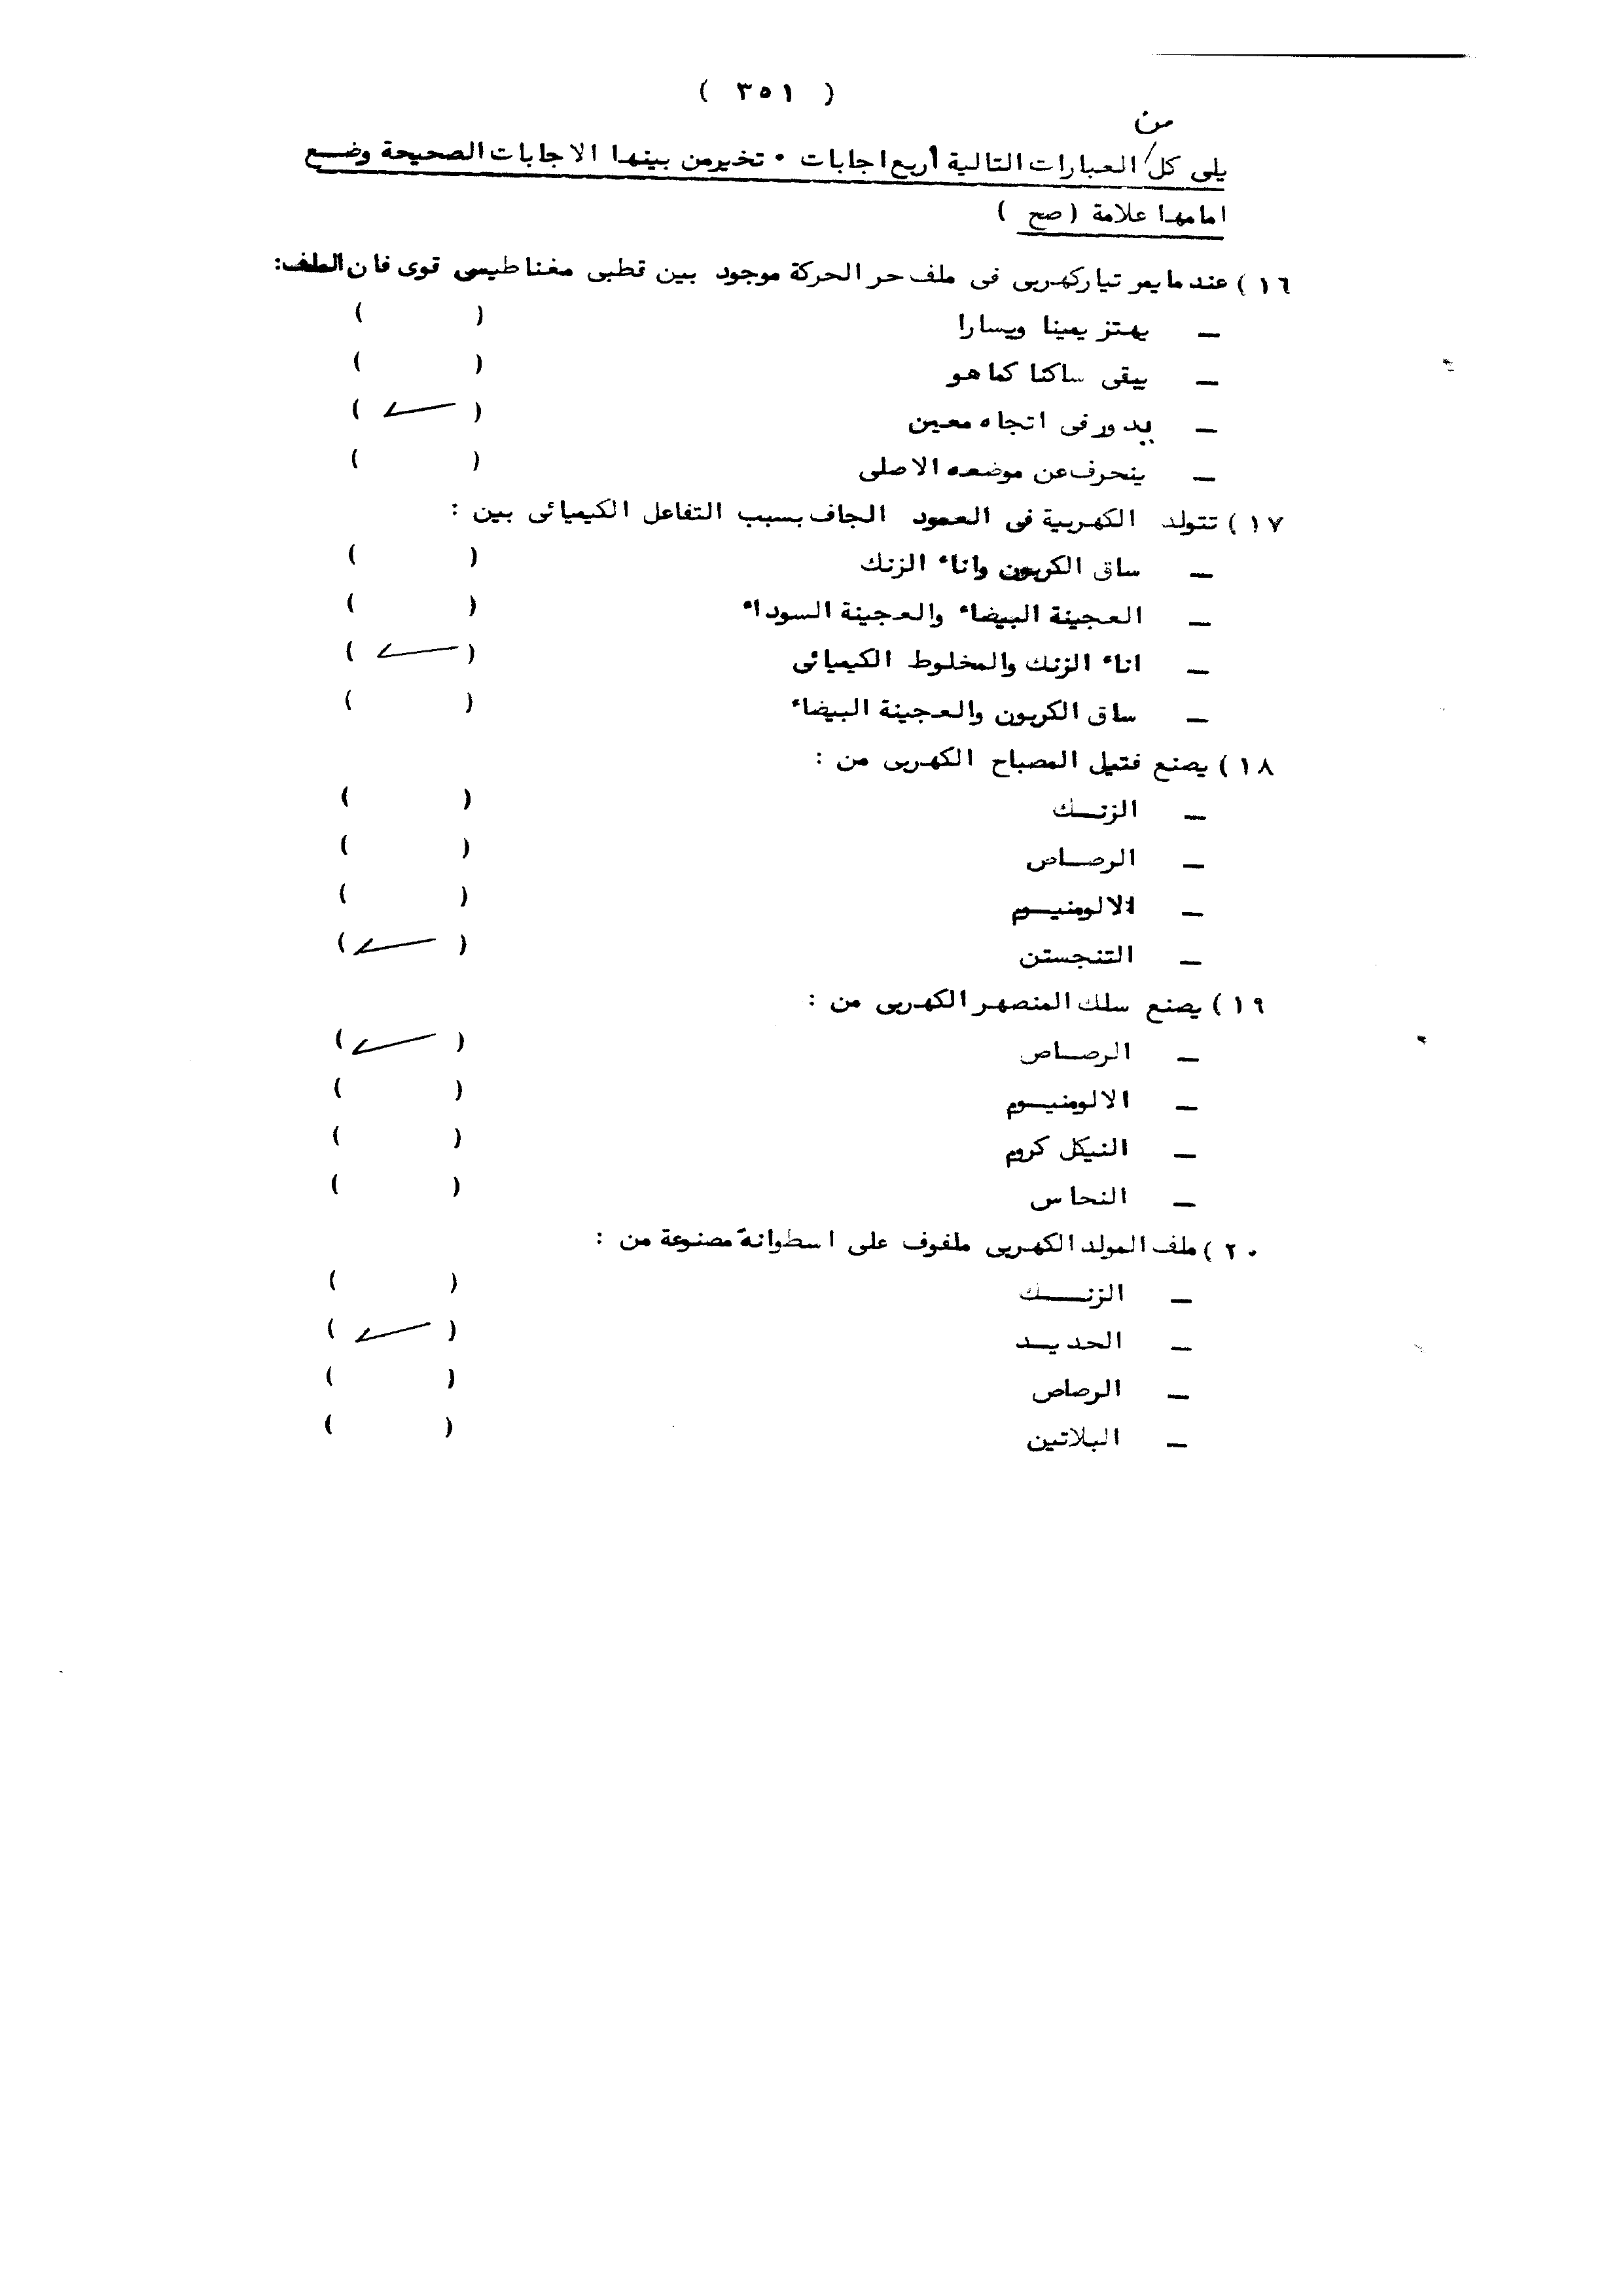 ( ٣٥١ )
من
يلى كل العبارات التالية أربع اجابات . تخير من بينها الاجابات الصحيحة وضع
امامها علامة ( صح )
١٦ ) عندما يمر تيار كهربى فى ملف حر الحركة موجود بين قطبى مغناطيسى قوى فان الملف :
— يهتز يمينا ويسارا ( )
— يبقى ساكنا كما هو ( )
— يدور فى اتجاه معين ( ✓ )
— ينحرف عن موضعه الاصلى ( )
١٧ ) تتولد الكهربية فى العمود الجاف بسبب التفاعل الكيميائى بين :
— ساق الكربون واناء الزنك ( )
— العجينة البيضاء والعجينة السوداء ( )
— اناء الزنك والمخلوط الكيميائى ( ✓ )
— ساق الكربون والعجينة البيضاء ( )
١٨ ) يصنع فتيل المصباح الكهربى من :
— الزنك ( )
— الرصاص ( )
— الالومنيوم ( )
— التنجستن ( ✓ )
١٩ ) يصنع سلك المنصهر الكهربى من :
— الرصاص ( ✓ )
— الالومنيوم ( )
— النيكل كروم ( )
— النحاس ( )
٢٠ ) ملف المولد الكهربى ملفوف على اسطوانة مصنوعة من :
— الزنك ( )
— الحديد ( ✓ )
— الرصاص ( )
— البلاتين ( )